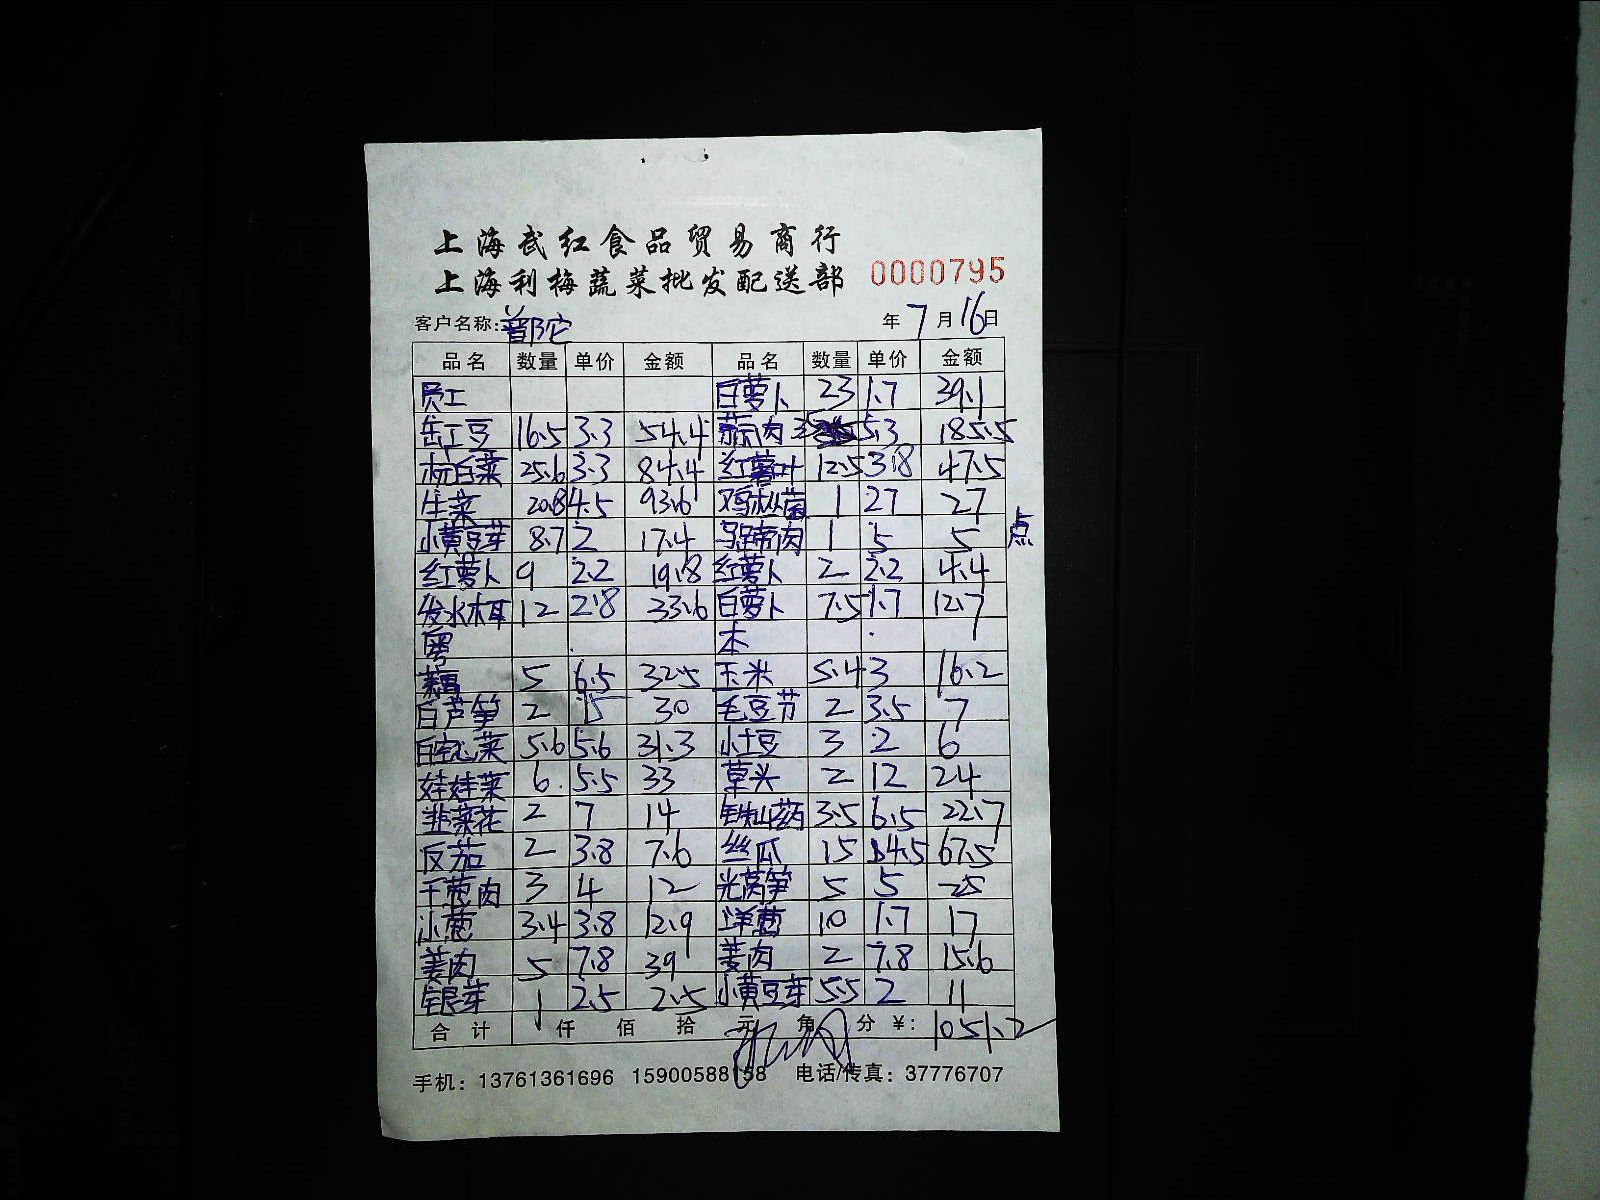 上海武红食品贸易商行
上海利梅蔬菜批发配送部 0000795
客户名称: 普陀 年 7 月 16 日
品名 数量 单价 金额 品名 数量 单价 金额
员工 白萝卜 23 1.7 39.1
缸豆 16.5 3.3 54.4 茄肉 35 5.3 185.5
杭白菜 25.6 3.3 84.4 红薯叶 12.5 3.8 47.5
生菜 20.8 4.5 93.6 鸡枞菌 1 27 27
小黄豆芽 8.7 2 17.4 马蹄肉 1 5 5 点
红萝卜 9 2.2 19.8 红萝卜 2 2.2 4.4
发水木耳 12 2.8 33.6 白萝卜 7.5 1.7 12.7
粤 本
藕 5 6.5 32.5 玉米 5.4 3 16.2
白芦笋 2 15 30 毛豆节 2 3.5 7
白空心菜 5.6 5.6 31.3 小土豆 3 2 6
娃娃菜 6 5.5 33 草头 2 12 24
韭菜花 2 7 14 铁山药 3.5 6.5 22.7
反茄 2 3.8 7.6 丝瓜 15 4.5 67.5
干葱肉 3 4 12 光莴笋 5 5 25
小葱 3.4 3.8 12.9 洋葱 10 1.7 17
姜肉 5 7.8 39 姜肉 2 7.8 15.6
银芽 1 2.5 2.5 小黄豆芽 5.5 2 11
合计 仟 佰 拾 元 角 分 ¥: 1051.2
手机: 13761361696 15900588158 电话/传真: 37776707